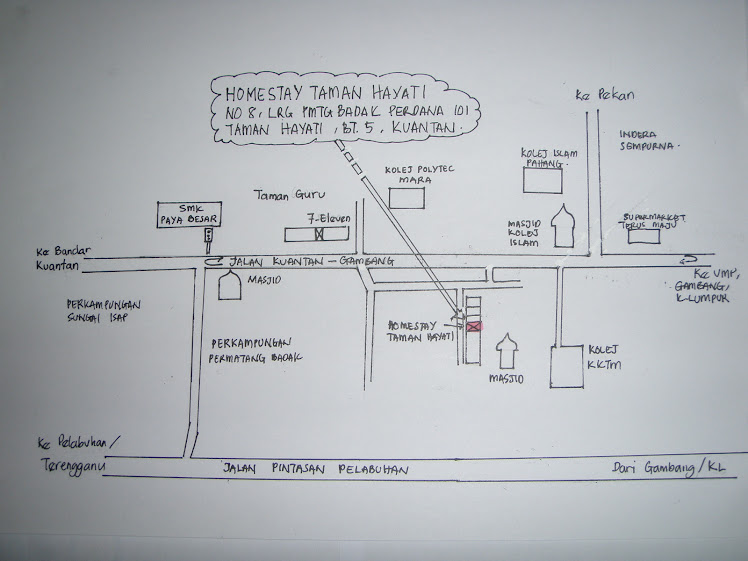 HOMESTAY TAMAN HAYATI
NO 8, LRG PMTG BADAK PERDANA 101
TAMAN HAYATI, BT. 5, KUANTAN.
Ke Pekan
INDERA
SEMPURNA.
KOLEJ ISLAM
PAHANG.
KOLEJ POLYTEC
MARA
Taman Guru
SMK
PAYA BESAR
7-Eleven
MASJID
KOLEJ
ISLAM
SUPERMARKET
TERUS MAJU
Ke Bandar
Kuantan
JALAN KUANTAN - GAMBANG
Ke UMP,
GAMBANG,
K-LUMPUR
MASJID
PERKAMPUNGAN
SUNGAI ISAP
HOMESTAY
TAMAN HAYATI
PERKAMPUNGAN
PERMATANG BADAK
MASJID
KOLEJ
KKTM
Ke Pelabuhan/
Terengganu
JALAN PINTASAN PELABUHAN
Dari Gambang/KL